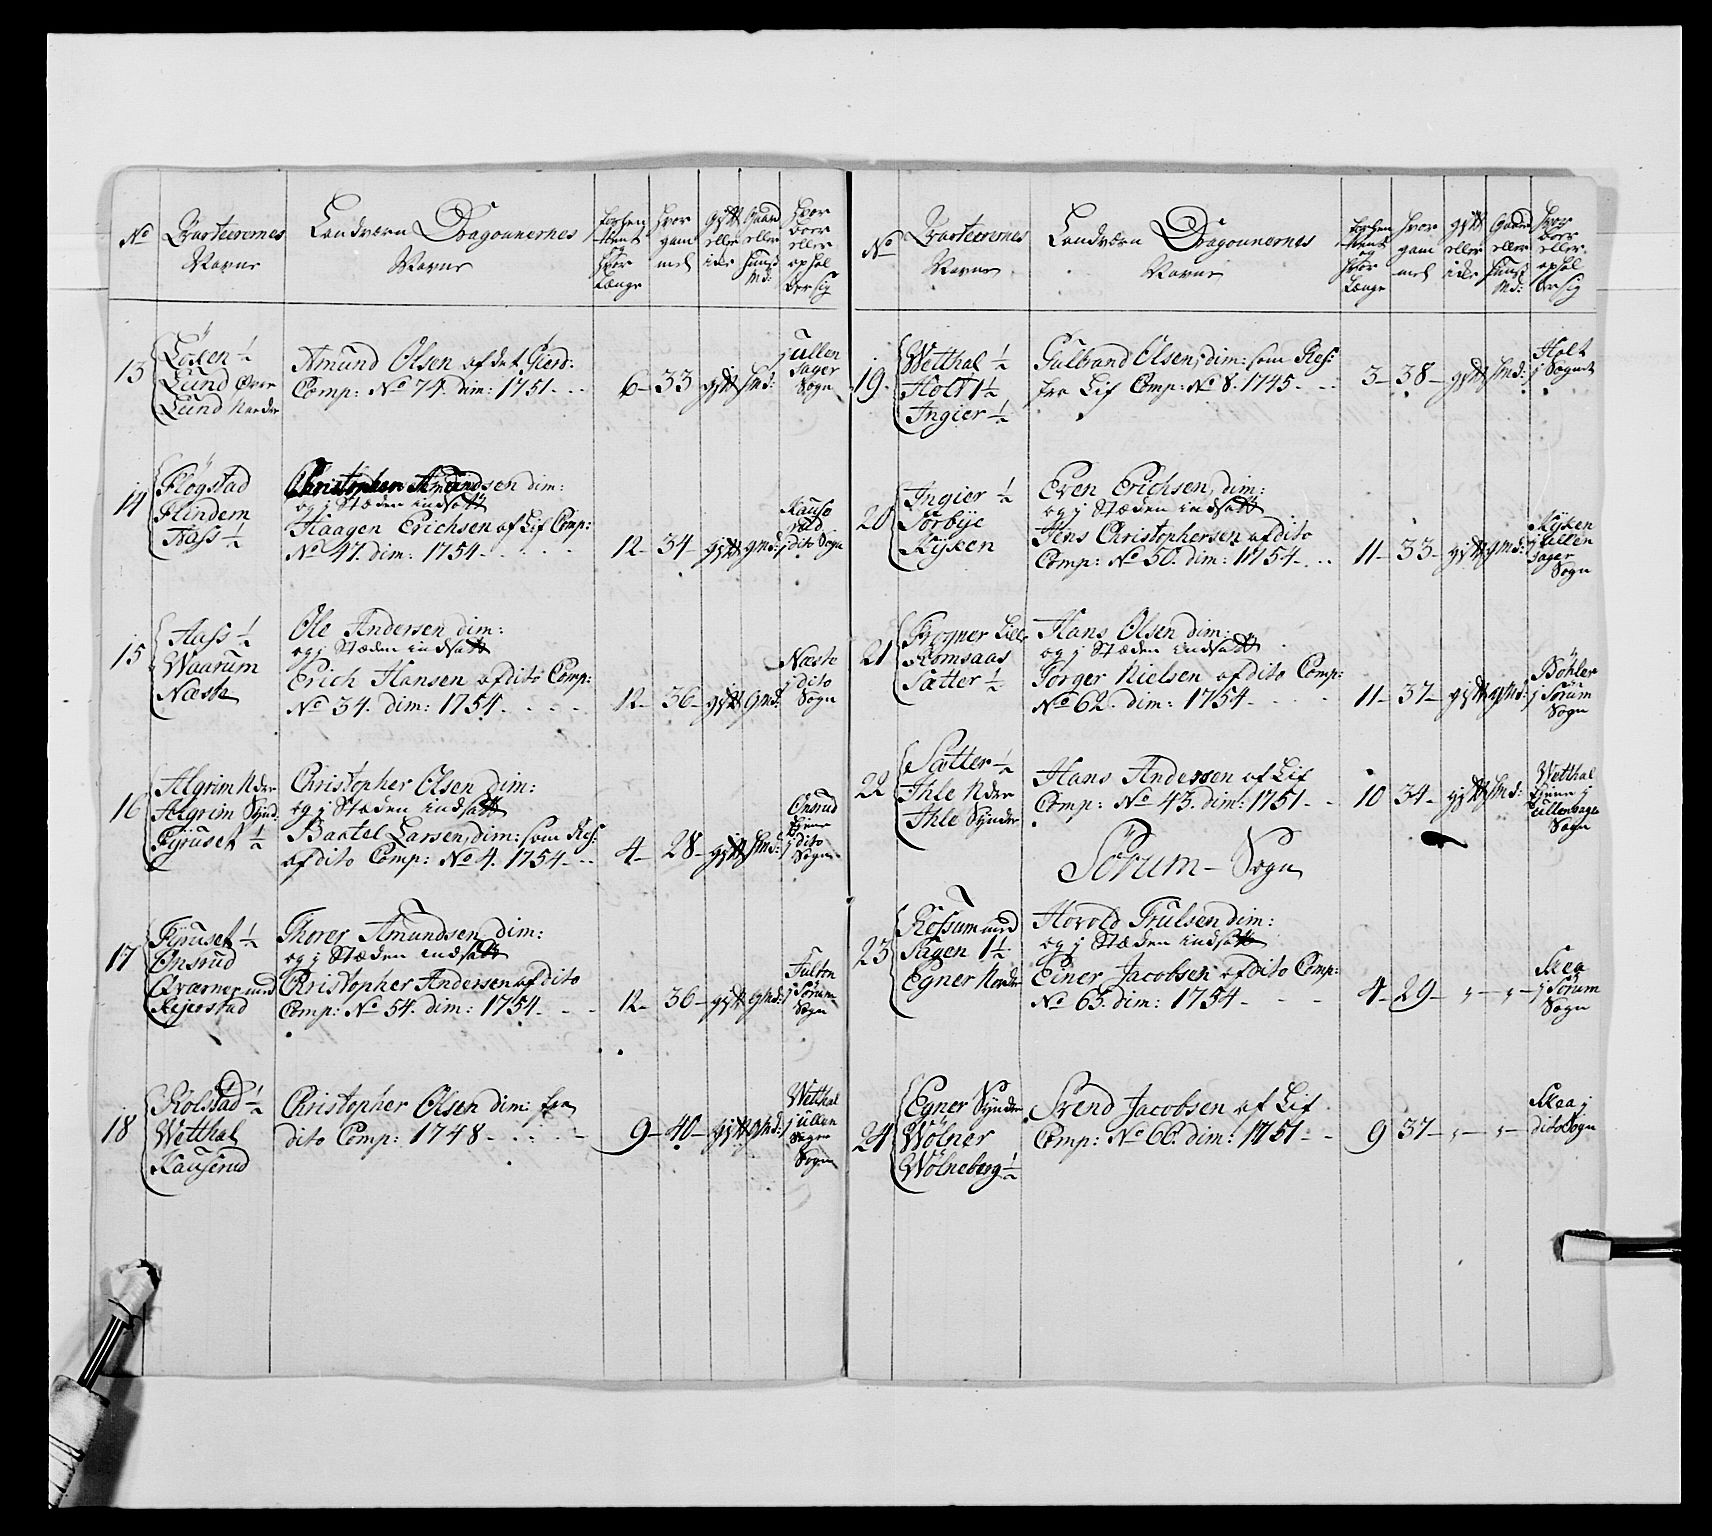 No
Qvarteerernes
Navne
Landværn Dragounernes
Navne
tienent
og
hvor
Længe
hvor
gam
mel
gift
eller
ikke
Gaard
eller
Huus
Md:
hvor
boer
eller
ophol
der sig
13
Löken ½
Lund Over
Lund Nordre
Amund Olsen af det Gierd:
Comp: No 74. dim: 1751.
6 - 33 gift hmd:
j Ullen
Sager
Sogn
14
Flögstad
Hlindem
Aass ½
Christopher Amundsen dim:
og j Stæden indsatt
Haagen Erichsen af Lif Comp:
No 47. dim: 1754.
12 - 34 - gift gmd:
Kause
rud
j dito Sogn
15
Aass ½
Waarum
Næste
Ole Andersen dim:
og j Stæden indsatt
Erich Hansen af dito Comp:
No 34. dim: 1754.
12 - 36 - gift gmd:
Næste
j dito
Sogn
16
Algrim Ndre
Algrim Synd:
Fyruset ½
Christopher Olsen dim:
og j Stæden indsatt
Baxtel Larsen, dim: som Res:
af dito Comp: No 4. 1754.
4 - 28 - gift hmd:
Onsrud
Eyene
j dito
Sogn
17
Fyruset ½
Onsrud
Qværner med
Rejerstad
Thorer Amundsen dim:
og j Stæden indsatt
Christopher Andersen af dito
Comp: No 54. dim: 1754.
12 - 36 - gift gmd:
Fulton
j Sörum
Sogn
18
Rolstad ½
Wetthal
Kauserud
Christopher Olsen dim: fra
dito Comp: 1748.
9 - 40 - gift gmd:
Wetthal
j Ullen
Sager
Sogn
No
Qvarteerernes
Navne
Landværn Dragounernes
Navne
tienent
og
hvor
Længe
hvor
gam
mel
gift
eller
ikke
Gaard
eller
Huus
Md:
hvor
boer
eller
ophol
der sig
19
Wetthal ½
Holt 1½
Ingier ½
Gulbrand Olsen, dim: som Res:
fra Lif Comp: No 8. 1745.
3 - 38 - gift hmd:
Holt
j Sognet
20
Ingier ½
Sörbye
Kijken
Even Erichsen, dim:
og j Stæden indsatt
Jens Christophersen af dito
Comp: No 50. dim: 1754.
11 - 33 - gift gmd:
Kijken
j Ullen
Sager
Sogn
21
Frogner Lille
Romsaas
Sætter ½
Hans Olsen dim:
og j Stæden indsatt
Jörger Nielsen af dito Comp:
No 62. dim: 1754.
11 - 37 - gift gmd:
Böhler
j Sörum
Sogn
22
Sætter ½
Ihle Ndre
Ihle Syndre
Hans Andersen af Lif
Comp: No 43. dim: 1751
10 34 - gift hmd:
Wetthal
Eyene j
Ullensager
Sogn
Sörum - Sogn
23
Rossum med
Sagen 1½
Egner Nordre
Horold Trulsen dim:
og j Stæden indsatt
Einer Jacobsen af dito Comp:
No 63. dim: 1754
4 - 29 - " - " -
Mea
j Sörum
Sogn
24
Egner Syndre
Wölner
Wölneberg ½
Svend Jacobsen af Lif
Comp: No 66. dim: 1751
9 37 - " - " -
Mea j
dito Sogn